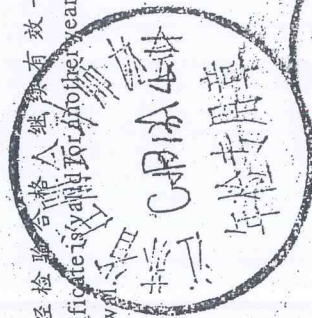 经检验合格 继续有效一
ficate is valid for another year
wal.
江苏省
CPA
年检专用章